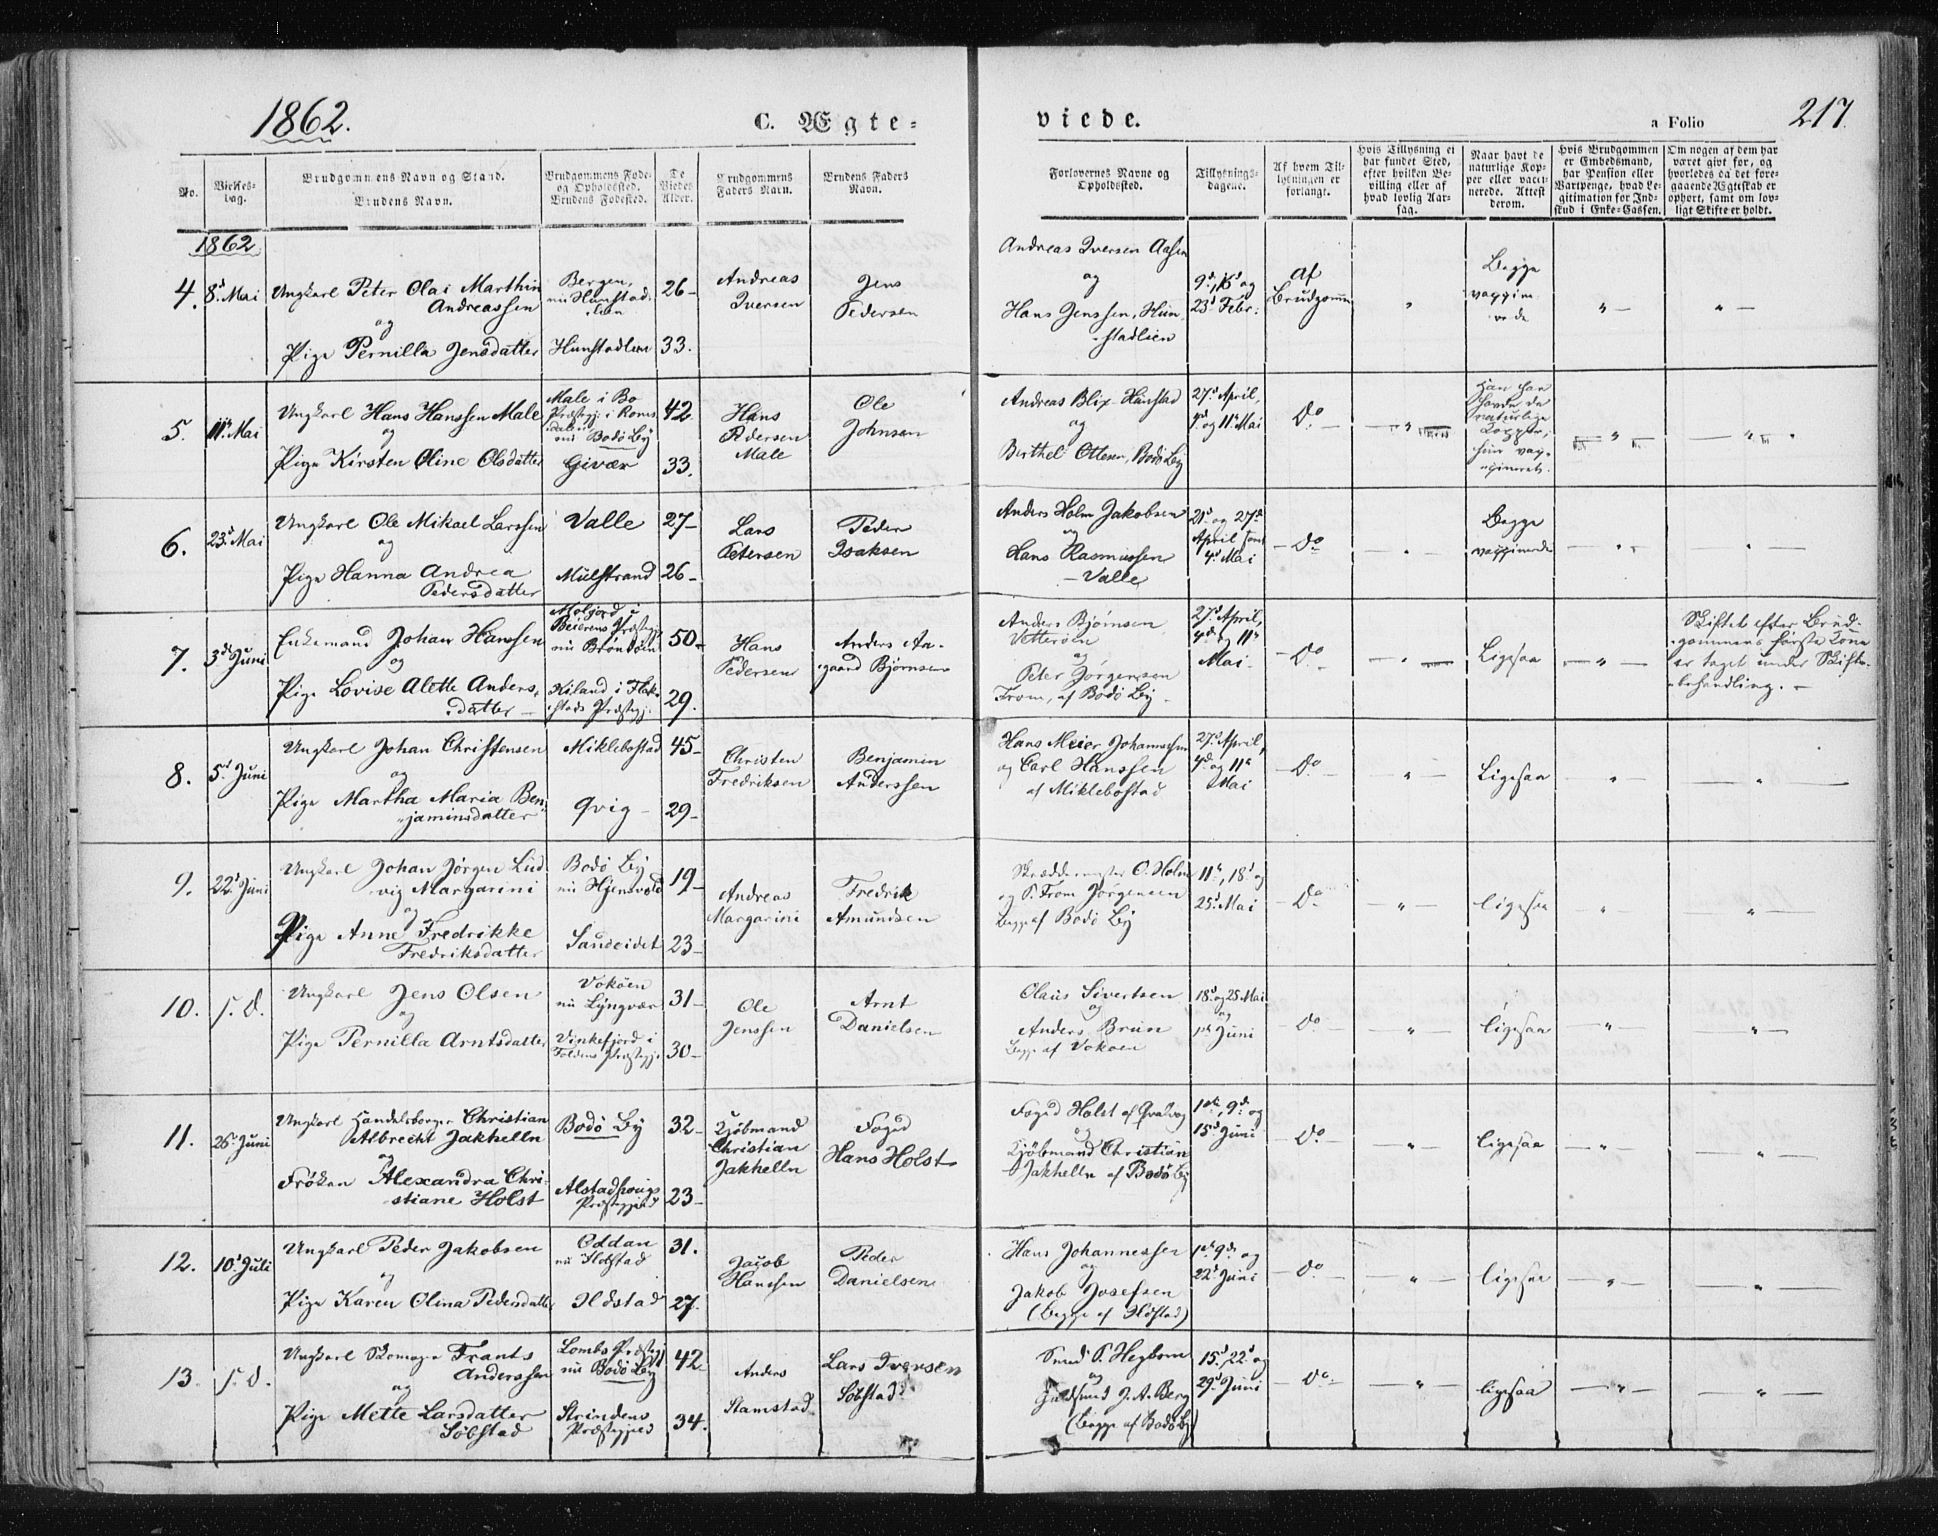 1862.
C. Ægte-
viede.
a Folio
217.
No.
Vielses-
dag.
Brudgommens Navn og Stand.
Brudens Navn.
Brudgommens Føde-
og Opholdssted.
Brudens Fødested.
De
Viedes
Alder.
Brudgommens
Faders Navn.
Brudens Faders
Navn.
Forlovernes Navne og
Opholdssted.
Tillysnings-
dagene.
Af hvem Til-
lysningen er
forlangt.
Hvis Tillysning ei
har fundet Sted,
efter hvilken Be-
villing eller af
hvad lovlig Aar-
sag.
Naar havt de
naturlige Kop-
per eller vacci-
nerede. Attest
derom.
Hvis Brudgommen
er Embedsmand,
har Pension eller
Vartpenge, hvad Le-
gitimation for Ind-
skud i Enke-Cassen.
Om nogen af dem har
været givt før, og
hvorledes da det fore-
gaaende Ægteskab er
ophørt, samt om lov-
ligt Skifte er holdt.
1862
4.
8d Mai
Ungkarl Peter Olai Marthin
Andreassen
og
Pige Pernilla Jensdatter
Bergen,
nu Hunstad-
lien
Hunstadlien
26-
33.
Andreas
Iversen
Jens
Pedersen
Andreas Iversen Aasen
og
Hans Jenssen, Hun-
stadlien
9d, 16d og
23d Febr:
Af
Brudgomm
"
Begge
vaccine-
rede
"
"
5.
11te Mai
Ungkarl Hans Hanssen Male
og
Pige Kirsten Oline Olsdatter
Male i Bo
Præstegj: i Roms
dalen
nu Bodö By
Givær
42
33.
Hans
Pedersen
Male
Ole
Johnsen
Andreas Blix Hunstad
og
Berthel Ottesen, Bodö By
27d April,
4de og 11te Mai
Do
"
Han har
havt de
naturlige
Kopper,
hun vac-
cineret.
"
"
6.
23d Mai
Ungkarl Ole Mikael Larssen
og
Pige Hanna Andrea
Pedersdatter
Valle
Mulstrand
27-
26-
Lars
Petersen
Peder
Isaksen
Anders Holm Jakobsen
og
Hans Rasmussen
- Valle
21d og 27d
April samt
4d Mai
Do
"
Begge
vaccinerede
"
"
7.
3de Juni
Enkemand Johan Hanssen
og
Pige Lovise Alette Anders-
datter
Moljord i
Beierens Præstegj:
nu
Kiland i Flak-
stads Præstegj.
50-
29.
Hans
Pedersen
Anders Aa-
gaard Björnsen
Anders Bjørnsen
Vetterøen
og
Peter Jørgensen
From, af Bodö By.
27d April,
4de og 11te
Mai
Do
"
Ligesaa
"
Skiftet efter Brud-
gommens første Kone
er taget under Skifte-
behandling.
8.
5d Juni
Ungkarl Johan Christensen
og
Pige Martha Maria Ben-
jaminsdatter
Miklebostad
Qvig
45-
29-
Christen
Fredriksen
Benjamin
Anderssen
Hans Meier Johannessen
og Carl Hanssen
af Miklebostad
27d April,
4de og 11te
Mai
Do
"
Ligesaa
"
"
9.
22d Juni
Ungkarl Johan Jörgen Lud-
vig Margarini
og
Pige Anne Fredrikke
Fredriksdatter
Bodö By
nu Hjernvold
Sandeidet
19-
23-
Andreas
Margarini
Fredrik
Amundsen
Skræddermester O. Holm
og P. From Jørgensen
begge af Bodö By
11te, 18d og
25d Mai
Do
"
ligesaa
"
"
10.
s. D.
Ungkarl Jens Olsen
og
Pige Pernilla Arntsdatter
Vokøen
nu Lyngvær
Vinkefjord i
Foldens Præstegj:
31-
30-
Ole
Jenssen
Arnt
Danielsen
Claus Sivertsen
og
Anders Brun
Begge af Vokøen
18d og 25 Mai
og
1ste Juni
Do
"
ligesaa
"
"
11.
26 Juni
Ungkarl Handelsborger Christian
Albrecht Jakhelln
og
Frøken Alexandra Chri-
stiane Holst
Bodö By
Alstadhougs
Præstegjeld
32-
23-
Kjøbmand
Christian
Jakhelln
Foged
Hans Holst
Foged Holst af Qvalvog
og
Kjøbmand Christian
Jakhelln af Bodö By
1ste, 9de og
15d Juni
Do
"
ligesaa
"
"
12.
10d Juli
Ungkarl Peder Jakobsen
og
Pige Karen Olina Pedersdatter
Oddan
nu Ildstad
Ildstad
31.
27.
Jacob
Hanssen
Peder
Danielsen
Hans Johannessen
og
Jakob Josefsen
(begge af Ildstad)
1ste 9de og
22d Juni
Do
"
ligesaa
"
"
13.
s. D.
Ungkarl Skomager Frants
Anderssen
og
Pige Mette Larsdatter
Söbstad
Lombs Præstegj
nu Bodö By
Strindens
Præstegjeld
42
34.
Anders
Stamstad
Lars Iversen
Söbstad
Smed P. Hegbom
og
Guldsmed J. A. Berg
(begge af Bodö By)
15d, 22d og
29d Juni
Do
"
ligesaa
"
"